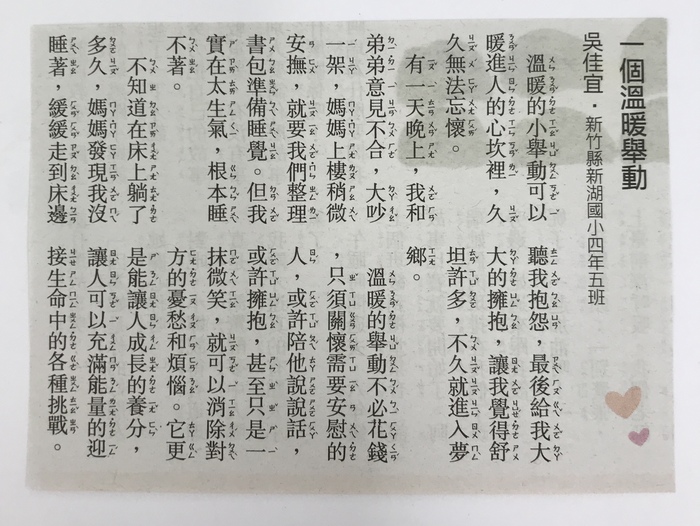 一個溫暖舉動
吳佳宜・新竹縣新湖國小四年五班
溫暖的小舉動可以
暖進人的心坎裡，久
久無法忘懷。
有一天晚上，我和
弟弟意見不合，大吵
一架，媽媽上樓稍微
安撫，就要我們整理
書包準備睡覺。但我
實在太生氣，根本睡
不著。
不知道在床上躺了
多久，媽媽發現我沒
睡著，緩緩走到床邊
聽我抱怨，最後給我大
大的擁抱，讓我覺得舒
坦許多，不久就進入夢
鄉。
溫暖的舉動不必花錢
，只須關懷需要安慰的
人，或許陪他說說話，
或許擁抱，甚至只是一
抹微笑，就可以消除對
方的憂愁和煩惱。它更
是能讓人成長的養分，
讓人可以充滿能量的迎
接生命中的各種挑戰。